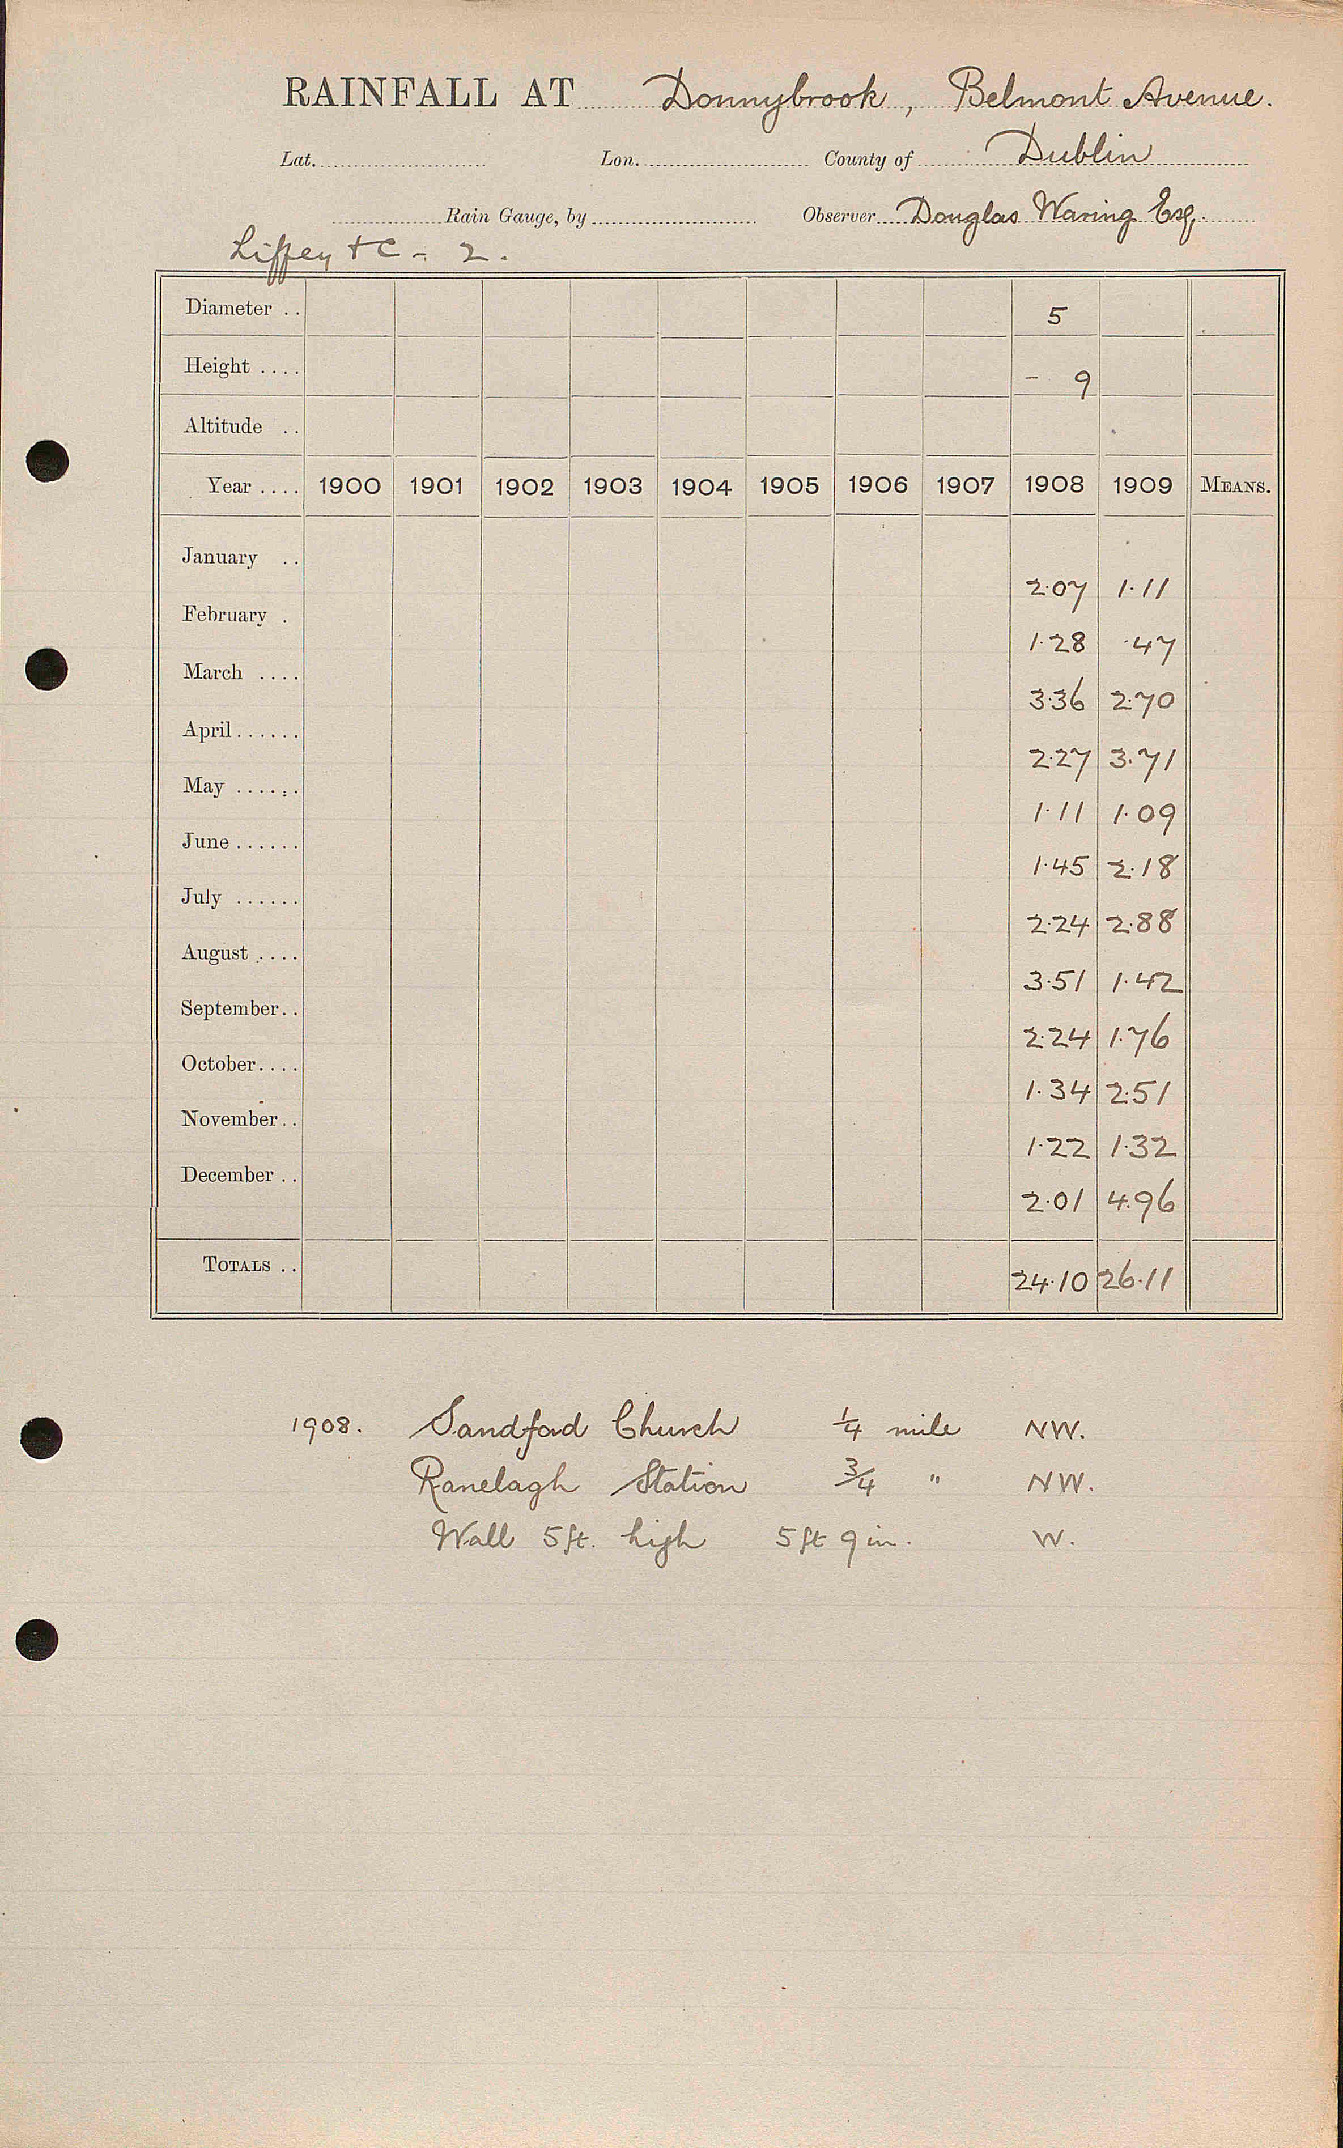 RAINFALL AT Donnybrook, Belmont Avenue.
Lat. Lon. County of Dublin
Rain Gauge, by Observer Douglas Waring Esq.
Liffey + C - 2.
Diameter .. 5
Height .... - 9
Altitude ..
Year .... 1900 1901 1902 1903 1904 1905 1906 1907 1908 1909 MEANS.
January .. 2.07 1.11
February . 1.28 .47
March .... 3.36 2.70
April ...... 2.27 3.71
May ...... 1.11 1.09
June ...... 1.45 2.18
July ...... 2.24 2.88
August .... 3.51 1.42
September.. 2.24 1.76
October.... 1.34 2.51
November.. 1.22 1.32
December .. 2.01 4.96
TOTALS .. 24.10 26.11
1908. Sandford Church 1/4 mile NW.
Ranelagh Station 3/4 " NW.
Wall 5ft. high 5ft 9in. W.